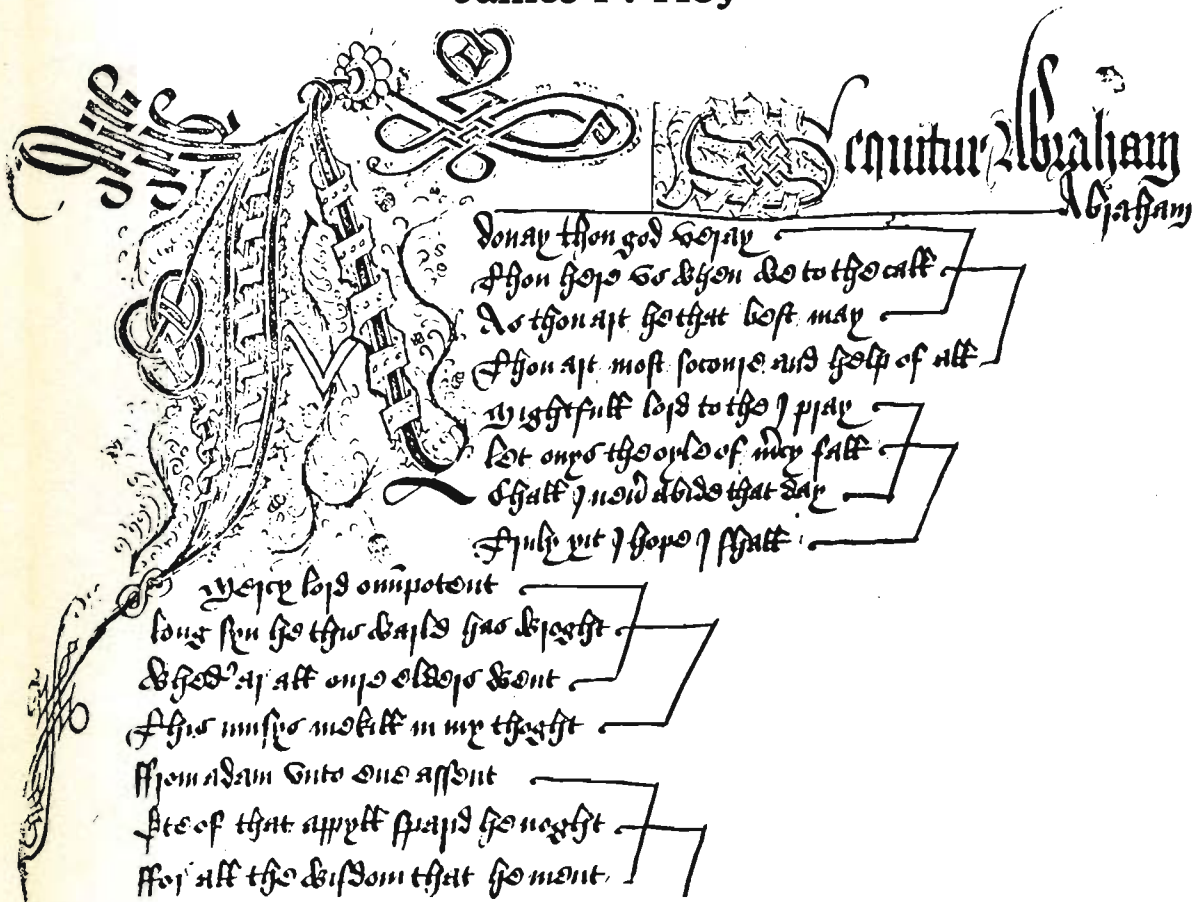 James F. Hoy
Sequitur Abraham
Abraham
Adonay thou god veray
Thou here vs when we to the call
As thou art he that best may
Thou art most socoure and help of all
Mightfull lord to the I pray
let onys the oyle of mcy fall
Shall I neu abide that day
Truly yit I hope I shall
Mercy lord omipotent
long syn he this warld has wroght
Whed' ar all oure elders went
This musys mekill in my thoght
ffrom adam vnto eue assent
Ete of that appyll sparid he noght
ffor all the wisdom that he ment